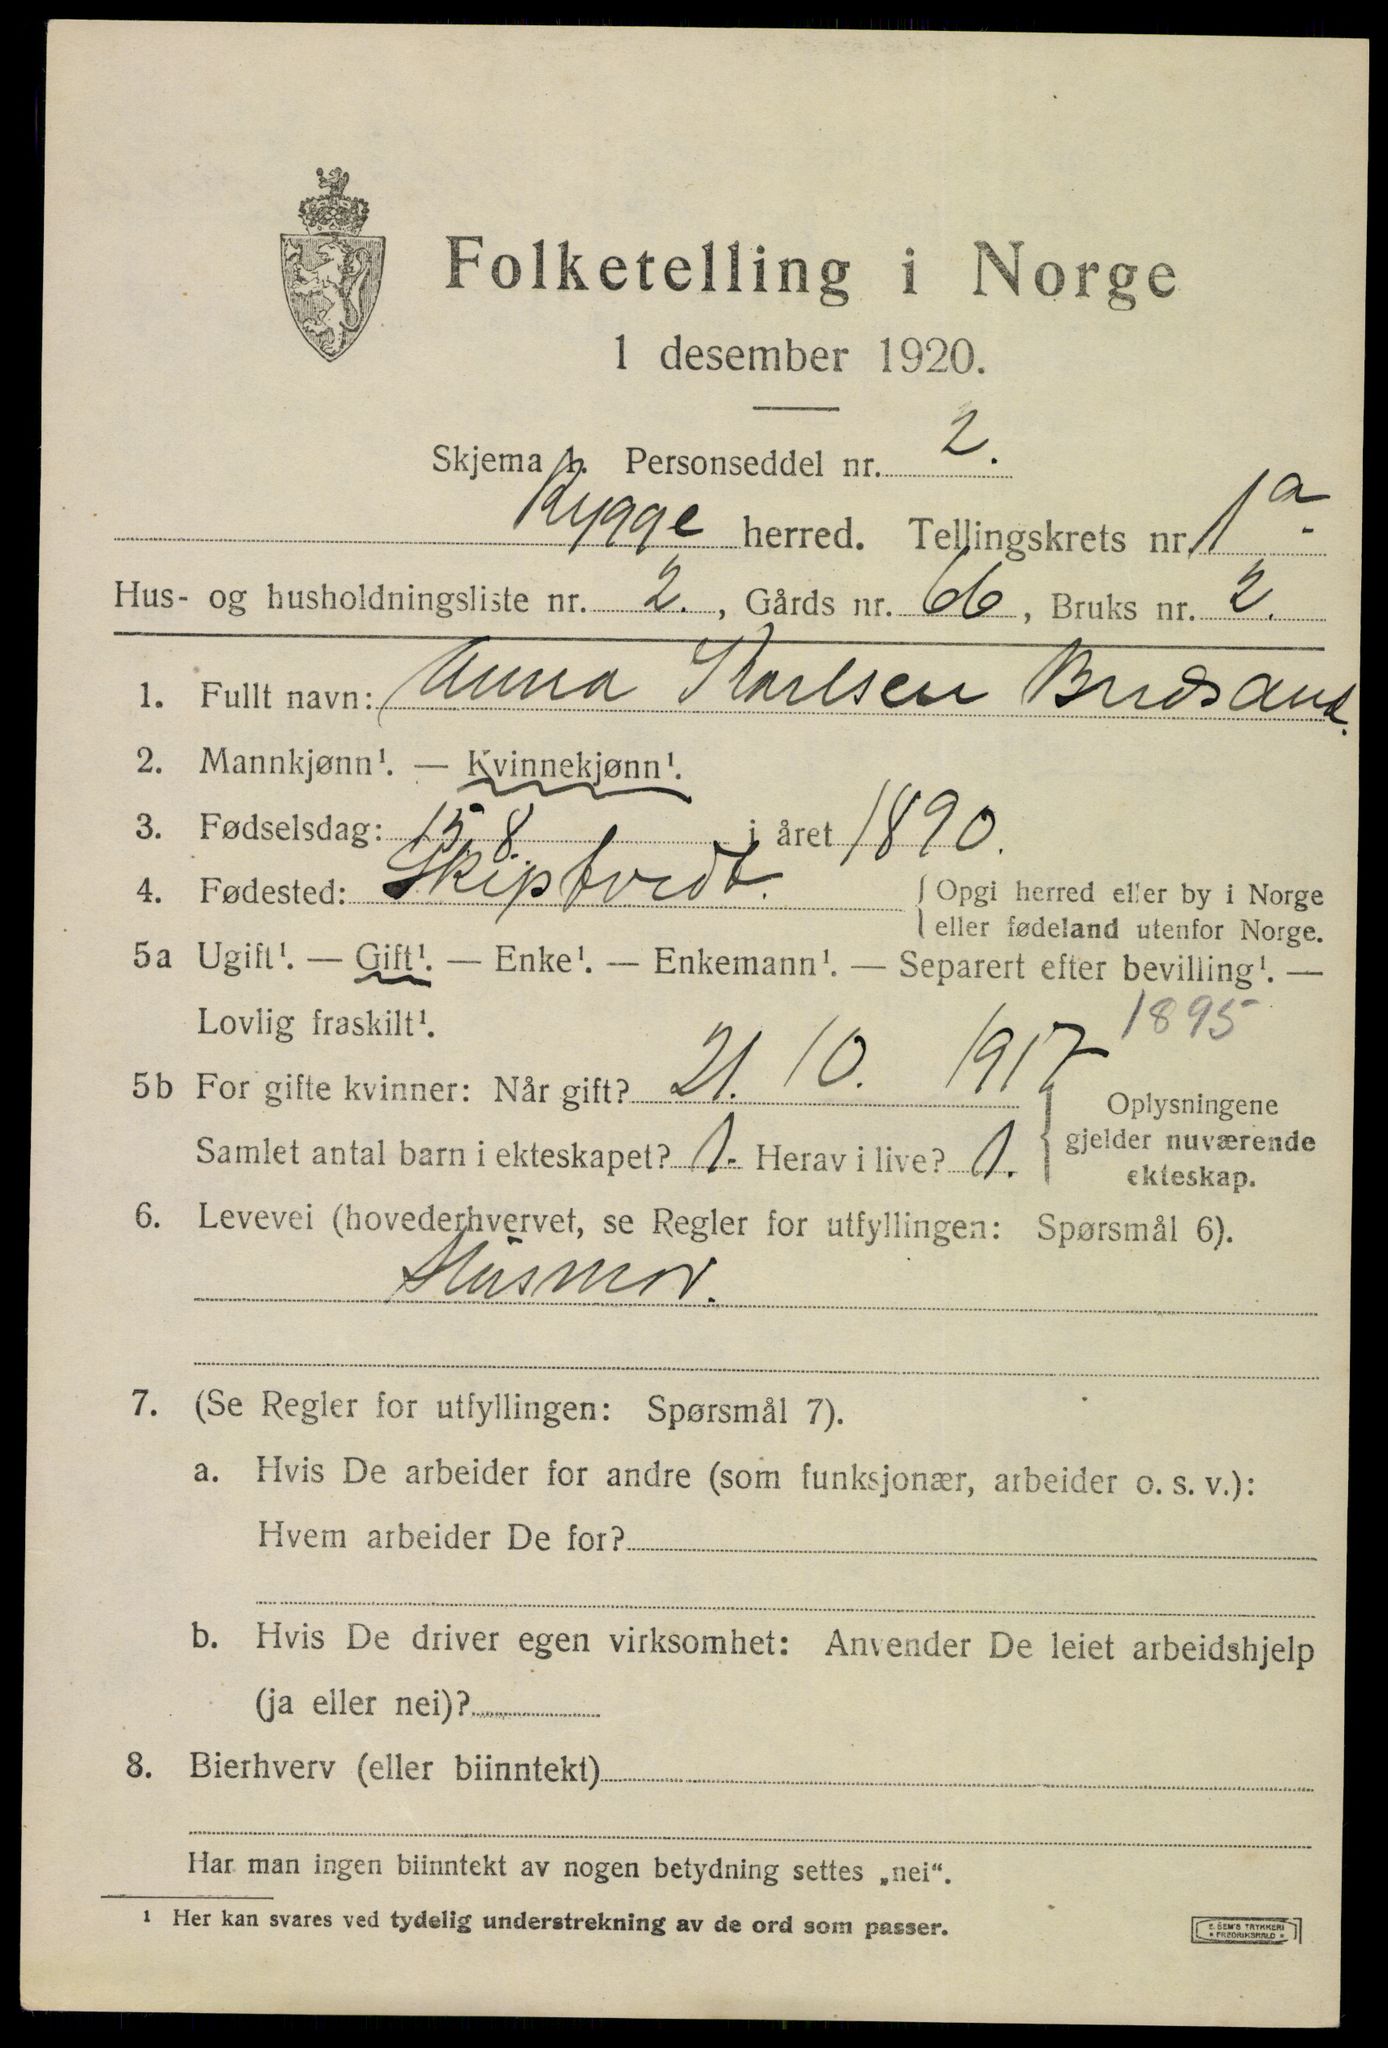 Folketelling i Norge
1 desember 1920.
Skjema 1. Personseddel nr. 2.
Rygge herred. Tellingskrets nr. 1a.
Hus- og husholdningsliste nr. 2., Gårds nr. 66, Bruks nr. 2.
1. Fullt navn: Anna Karlsen Budsand.
2. Mannkjønn¹. — Kvinnekjønn¹.
3. Fødselsdag: 15 8. i året 1890.
4. Fødested: Skiptvedt. { Opgi herred eller by i Norge
eller fødeland utenfor Norge.
5a Ugift¹. — Gift¹. — Enke¹. — Enkemann¹. — Separert efter bevilling¹. —
Lovlig fraskilt¹. 1895
5b For gifte kvinner: Når gift? 21. 10. 1917 { Oplysningene
gjelder nuværende
ekteskap.
Samlet antal barn i ekteskapet? 1. Herav i live? 1.
6. Levevei (hovederhvervet, se Regler for utfyllingen: Spørsmål 6).
Husmor.
7. (Se Regler for utfyllingen: Spørsmål 7).
a. Hvis De arbeider for andre (som funksjonær, arbeider o. s. v.):
Hvem arbeider De for?
b. Hvis De driver egen virksomhet: Anvender De leiet arbeidshjelp
(ja eller nei)?
8. Bierhverv (eller biinntekt)
Har man ingen biinntekt av nogen betydning settes „nei“.
¹ Her kan svares ved tydelig understrekning av de ord som passer.
E. SEM'S TRYKKERI
* FREDRIKSHALD *